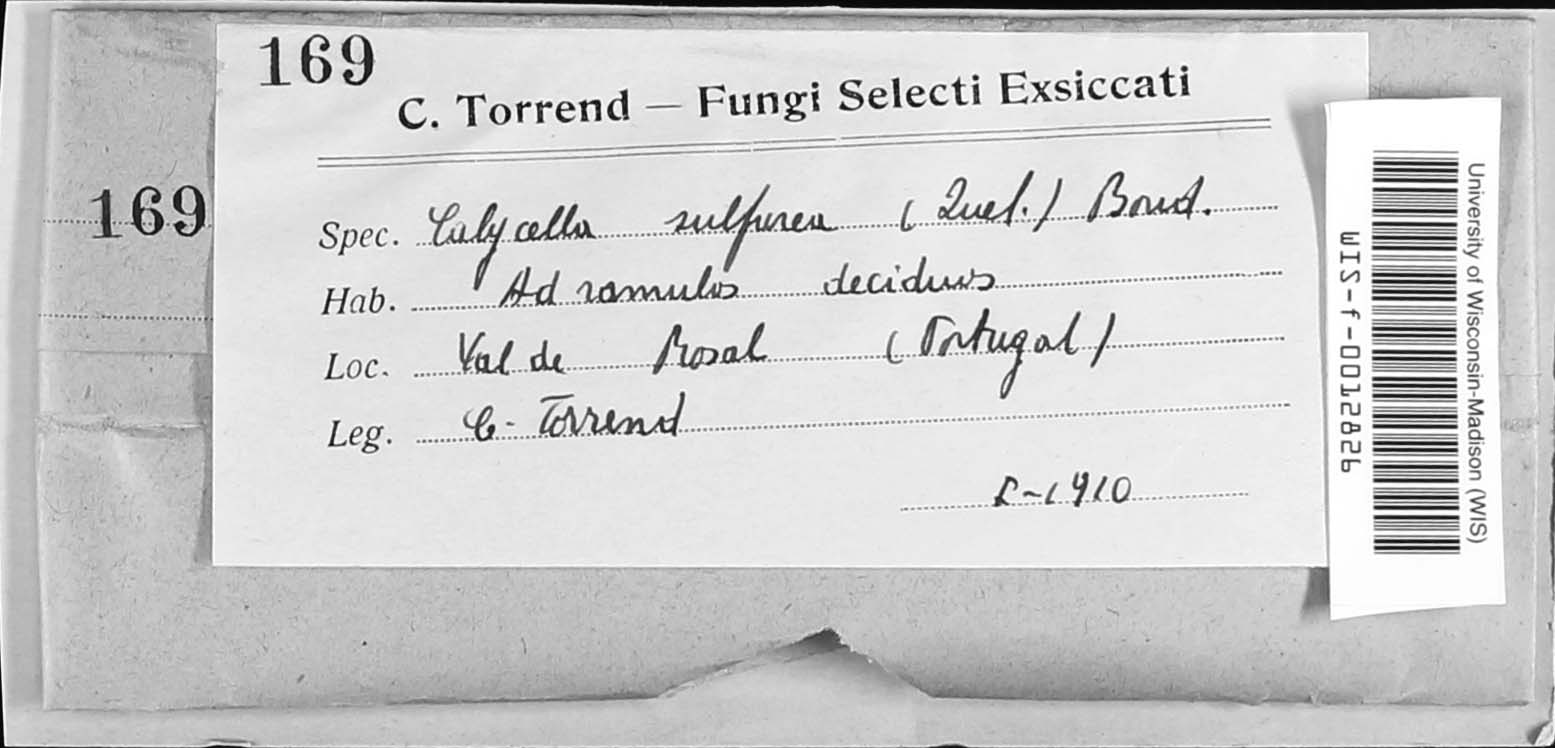 169
C. Torrend — Fungi Selecti Exsiccati
169
Spec. Calycella sulfurea (Quel.) Boud.
Hab. Ad ramulos deciduos
Loc. Val de Rosal (Portugal)
Leg. C. Torrend
-1910
University of Wisconsin-Madison (WIS)
WIS-f-0012826